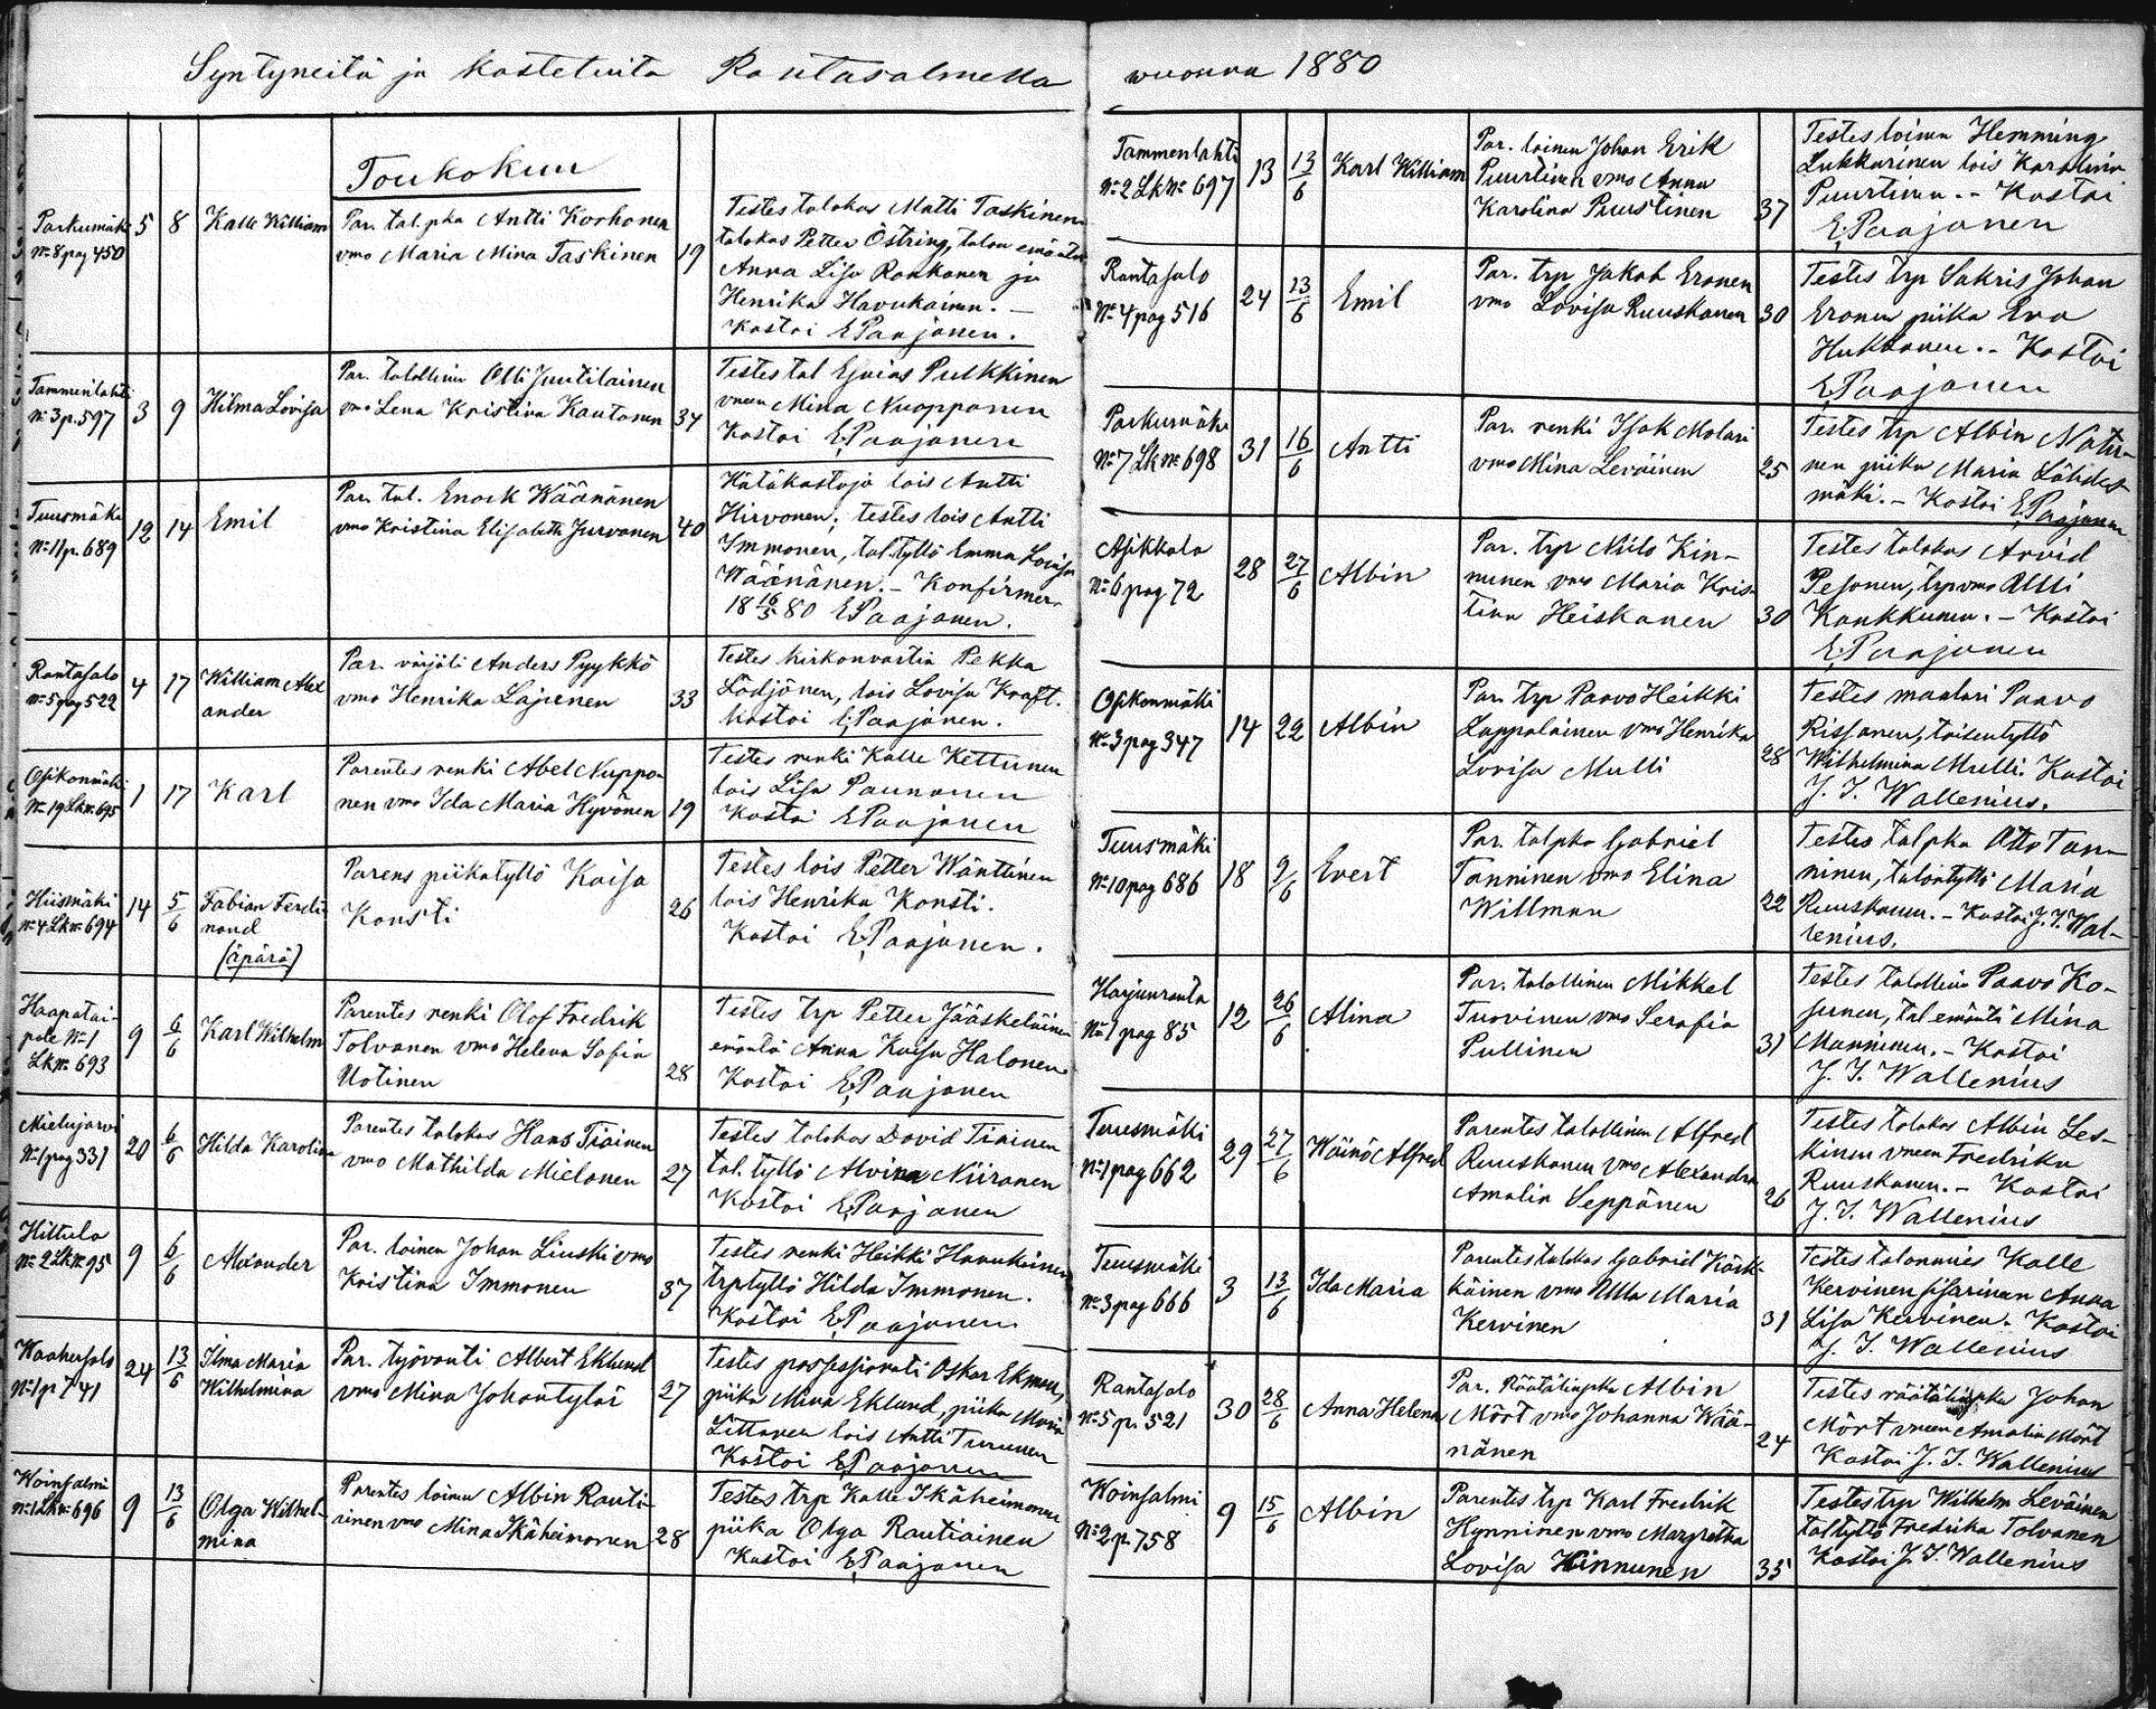 Syntyneitä ja kastetuita Rantasalmella
Toukokuu
Parkumäki 5 8 Kalle William Par. tal.pka Antti Korhonen
No 8 pag 450 vmo Maria Mina Taskinen 19
Testes talokas Matti Taskinen
talokas Petter Östring, talon emäntä
Anna Lisa Ronkanen ja
Henrika Havukainen. —
Kastoi E. Paajanen.
Tammenlahti
No 3 p. 597 3 9 Hilma Lovisa
Par. talollinen Olli Juutilainen
vmo Lena Kristina Kautonen 34
Testes tal Esaias Pulkkinen
vneen Mina Nuopponen
Kastoi E. Paajanen
Tuusmäki
No 11 p. 689 12 14 Emil
Par. tal. Enock Wäänänen
vmo Kristina Elisabeth Jurvanen 40
Hätäkastaja lois Antti
Hirvonen; testes lois Antti
Immonen, tal.tyttö Emma Lovisa
Wäänänen. — Konfirmer.
18 16/5 80 E. Paajanen.
Rantasalo
No 5 pag 522 4 17 William Alex
ander
Par. värjäli Anders Pyykkö
vmo Henrika Lajunen 33
Testes kirkonvartia Pekka
Lödjönen, lois Lovisa Kraft.
Kastoi E. Paajanen.
Osikonmäki
No 19 Lk no 695 1 17 Karl
Parentes renki Abel Nuppo-
nen vmo Ida Maria Hyvönen 19
Testes renki Kalle Kettunen
lois Lisa Paunonen
Kastoi E. Paajanen
Hiismäki
No 4 Lk no 694 14 5/6 Fabian Ferdi-
nand
(äpärä)
Parens piikatyttö Kaisa
Konsti 26
Testes lois Petter Wänttinen
lois Henrika Konsti.
Kastoi E. Paajanen.
Haapatai-
pale No 1
Lk no 693 9 6/6 Karl Wilhelm
Parentes renki Olof Fredrik
Tolvanen vmo Helena Sofia
Uotinen 28
Testes trp Petter Jääskeläinen
emäntä Anna Kaisa Halonen
Kastoi E. Paajanen
Mielujärvi
No 1 pag 331 20 6/6 Hilda Karolina
Parentes talokas Hans Tiainen
vmo Mathilda Mielonen 27
Testes talokas David Tiainen
tal. tyttö Alvina Niiranen
Kastoi E. Paajanen
Hiltula
No 2 Lk no 95 9 6/6 Alexander
Par. loinen Johan Liuski vmo
Kristina Immonen 37
Testes renki Heikki Havukainen
trp tyttö Hilda Immonen.
Kastoi E. Paajanen
Waahersalo
No 1 p 741 24 13/6 Ilma Maria
Wilhelmina
Par. työvouti Albert Eklund
vmo Mina Johantytär 27
Testes possessionati Oskar Ekman,
piika Mina Eklund, piika Maria
Littanen lois Antti Turunen
Kastoi E. Paajanen
Woinsalmi
No 1 Lk no 696 9 13/6 Olga Wilhel-
mina
Parentes loinen Albin Rauti-
ainen vmo Mina Ikäheimonen 28
Testes trp Kalle Ikäheimonen
piika Olga Rautiainen
Kastoi E. Paajanen
wuonna 1880
Tammenlahti
No 2 Lk No 697 13 13/6 Karl William
Par. loinen Johan Erik
Puurtinen vmo Anna
Karolina Puustinen 37
Testes loinen Hemming
Lukkarinen lois Karolina
Puurtinen. - Kastoi
E. Paajanen
Rantasalo
No 4 pag 516 24 13/6 Emil
Par. trp Jakob Eronen
vmo Lovisa Ruuskanen 30
Testes trp Sakris Johan
Eronen piika Eva
Hukkanen. - Kastoi
E. Paajanen
Parkumäki
No 7 Lk no 698 31 16/6 Antti
Par. renki Isak Molari
vmo Mina Leväinen 25
Testes trp Albin Natu-
nen piika Maria Lähdes-
mäki. - Kastoi E. Paajanen
Asikkala
No 6 pag 72 28 27/6 Albin
Par. trp Niilo Kin-
nunen vmo Maria Kris-
tina Heiskanen 30
Testes talokas Arvid
Pesonen, trp vmo Ulli
Kankkunen. - Kastoi
E. Paajanen
Osikonmäki
No 3 pag 347 14 22 Albin
Par. trp Paavo Heikki
Lappalainen vmo Henrika
Lovisa Mulli 28
Testes maalari Paavo
Rissanen, loisentyttö
Wilhelmina Mulli. Kastoi
J. I. Wallenius.
Tuusmäki
No 10 pag 686 18 9/6 Evert
Par. talpka Gabriel
Tanninen vmo Elina
Willman 22
Testes talpka Otto Tan-
ninen, talontyttö Maria
Ruuskanen. - Kastoi J. I. Wal-
lenius.
Harjunranta
No 1 pag 85 12 26/6 Alina
Par. talollinen Mikkel
Tuovinen vmo Serafia
Pullinen 31
Testes talollinen Paavo Ko-
sunen, tal emäntä Mina
Manninen. - Kastoi
J. I. Wallenius
Tuusmäki
No 1 pag 662 29 27/6 Wäinö Alfred
Parentes talollinen Alfred
Ruuskanen vmo Alexandra
Amalia Seppänen 26
Testes talokas Albin Les-
kinen vneen Fredrika
Ruuskanen. - Kastoi
J. I. Wallenius
Tuusmäki
No 3 pag 666 3 13/6 Ida Maria
Parentes talokas Gabriel Kärk-
käinen vmo Ulla Maria
Kervinen 31
Testes talonmies Kalle
Kervinen sisarinen Anna
Lisa Kervinen. Kastoi
J. I. Wallenius
Rantasalo
No 5 p. 521 30 28/6 Anna Helena
Par. Räätälinpka Albin
Mört vmo Johanna Wää-
nänen 24
Testes räätälinpka Johan
Mört vneen Amalia Mört
Kastoi J. I. Wallenius
Woinsalmi
No 2 p. 758 9 15/6 Albin
Parentes trp Karl Fredrik
Hynninen vmo Margretha
Lovisa Kinnunen 35
Testes trp Wilhelm Leväinen
taltyttö Fredrika Tolvanen
Kastoi J. I. Wallenius